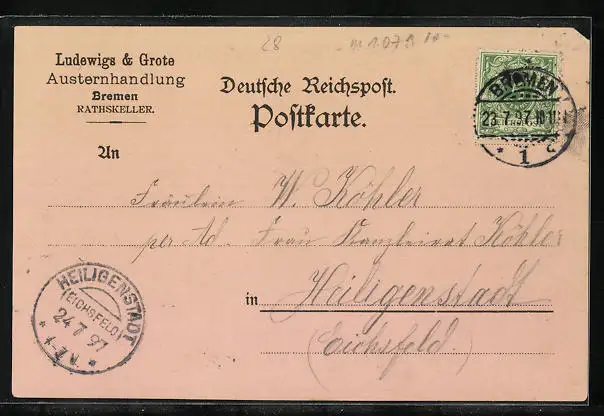 28
Ludewigs & Grote
Austernhandlung
Bremen
RATHSKELLER.
Deutsche Reichspost.
Postkarte.
BREMEN
23.7.97.10-11
* 1 a
An
Fräulein W. Köhler
per Ad. Frau Kanzleirat Köhler
in Heiligenstadt
(Eichsfeld.)
HEILIGENSTADT
(EICHSFELD)
24 7 97